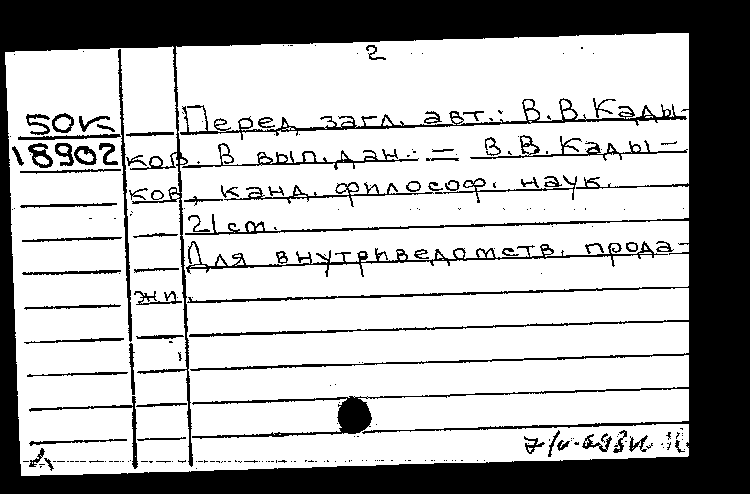 2
50К Перед загл. авт.: В.В.Кады-
18902 ков. В вып.дан.: – В.В.Кады-
ков, канд. философ. наук.
21 см.
Для внутриведомств. прода-
жи.